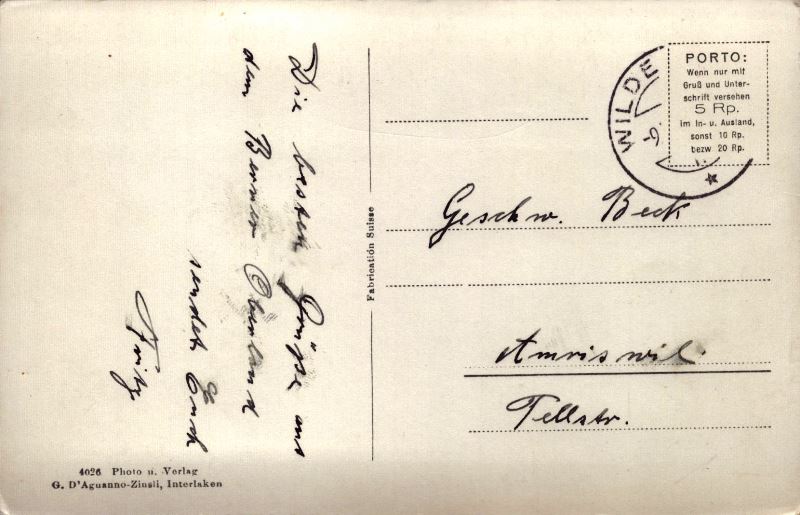 Die besten Grüsse aus
dem Berner Oberland
sendet Euch
Fritz
Fabrication Suisse
WILDE
PORTO:
Wenn nur mit
Gruß und Unter-
schrift versehen
5 Rp.
im In- u. Ausland,
sonst 10 Rp.
bezw 20 Rp.
Geschw. Beck
Amriswil.
Tellstr.
4026 Photo u. Verlag
G. D'Aguanno-Zinsli, Interlaken